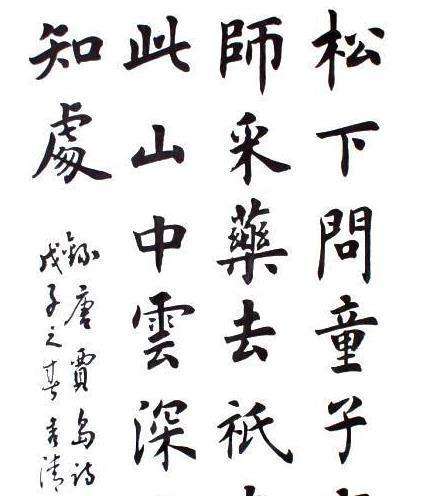 松下問童子
師采藥去祇
此山中雲深
知處
錄唐賈島詩
戊子之春